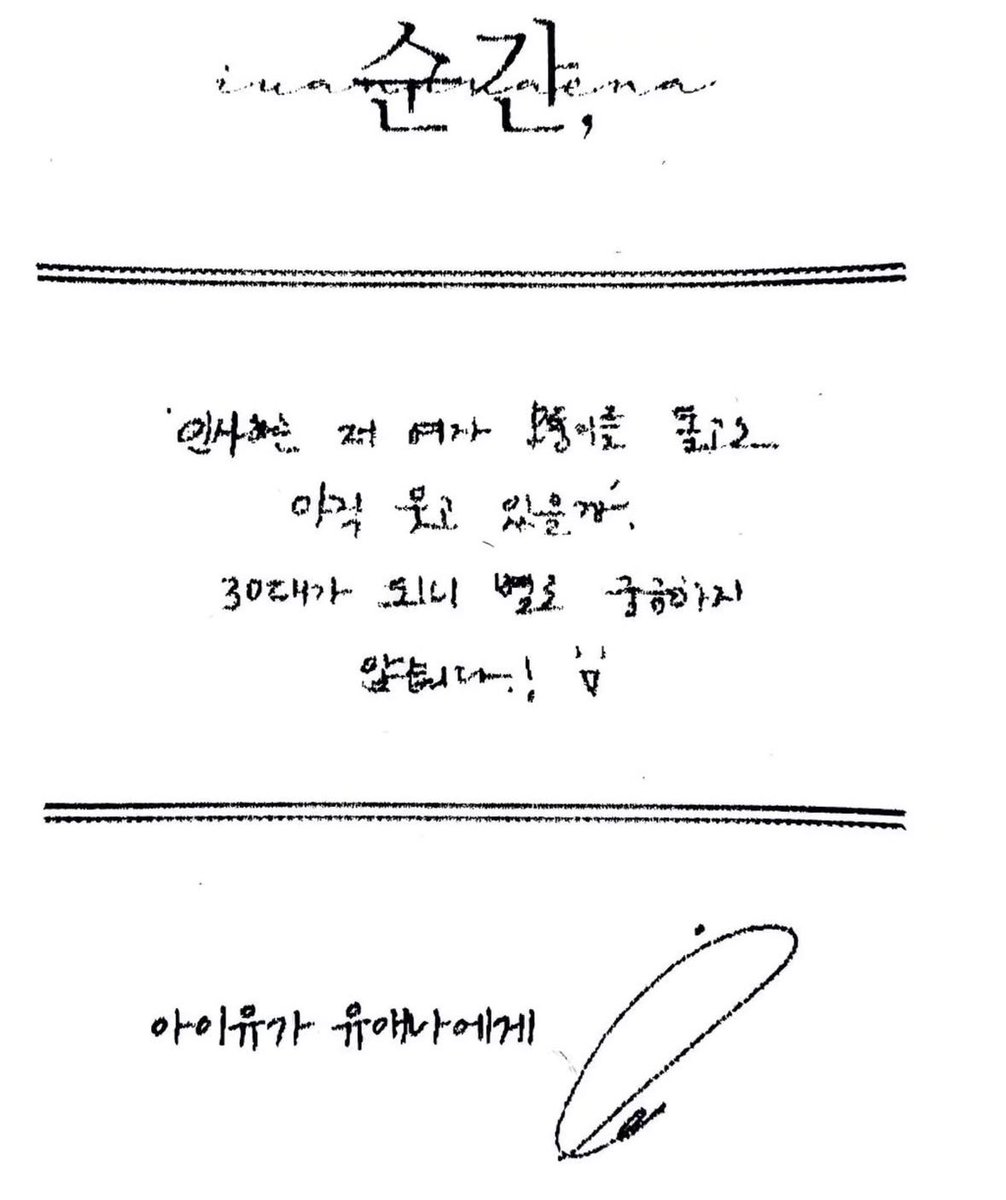 순간,
iuandkaena
인사하는 저 여자 모퉁이를 돌고도
아직 웃고 있을까.
30대가 되니 별로 궁금하지
않습니다.!
아이유가 유애나에게